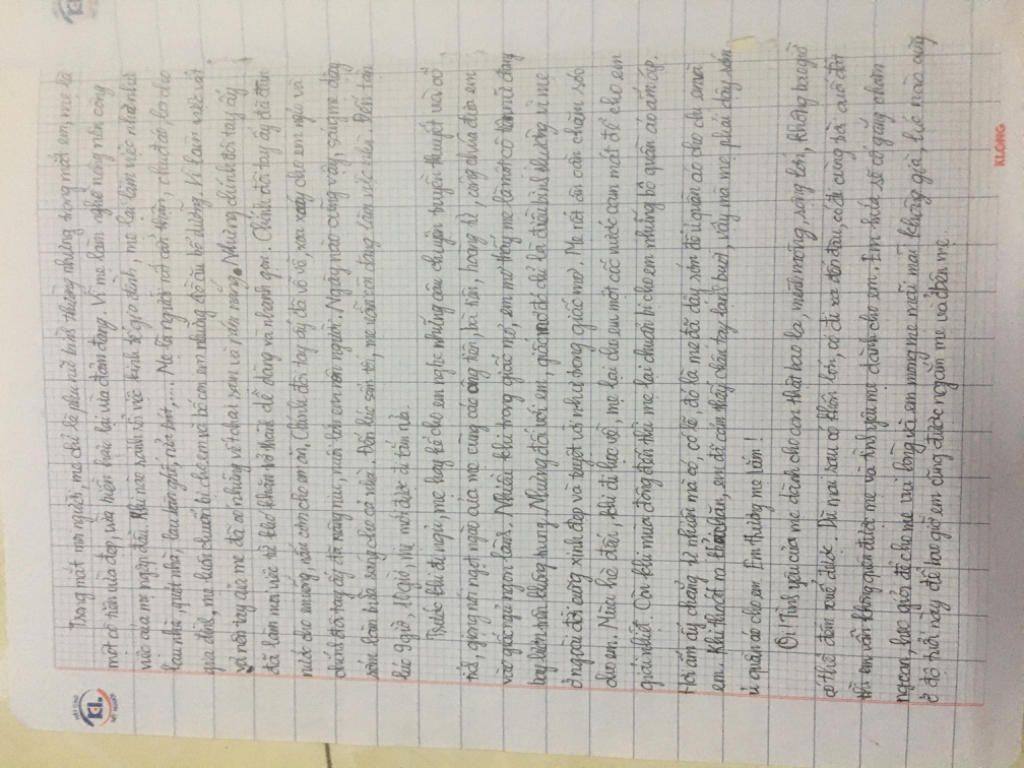 Trong mắt mọi người, mẹ chỉ là phụ nữ bình thường nhưng trong mắt em, mẹ là
một cô tiên vừa đẹp, vừa hiền hậu lại vừa đảm đang. Vì mẹ làm nghề nông nên công
việc của mẹ ngập đầu. Khi nào xong việc kinh tế gia đình, mẹ lại làm việc nhà như:
lau nhà, quét nhà, lau bàn ghế, rửa bát,.... Mẹ là người rất cẩn thận, chu đáo, lo cho
gia đình, mẹ luôn chuẩn bị cho em và bố em những đồ ăn bổ dưỡng. Vì làm việc vất
vả nên tay của mẹ đã có những vết chai sạm và rám nắng. Nhưng chính đôi tay ấy
đã làm mọi việc từ khó khăn trở thành dễ dàng và nhanh gọn. Chính đôi tay ấy đã đan
nước cho em uống, nấu cơm cho em ăn, Chính đôi tay ấy đã vỗ về, xoa xoáy cho em ngủ và
chính đôi tay ấy đã nâng niu, nuôi lớn em nên người. Ngày nào cũng vậy, sáng mẹ dậy
sớm làm bữa sáng cho cả nhà. Đến lúc sẩm tối, mẹ vẫn còn đang làm việc nhà. Đến tận
lúc 9 giờ, 10 giờ, mẹ mới được đi tắm rửa.
Trước khi đi ngủ, mẹ hay kể cho em nghe những câu chuyện truyền thuyết và cổ
tích, giọng nói ngọt ngào của mẹ cùng các ông tiên, bà tiên, hoàng tử, công chúa đưa em
vào giấc ngủ ngon lành. Nhiều khi trong giấc mơ, em mơ thấy mẹ là một cô tiên nữ đang
bay trên thiên đường không trung. Nhưng đối với em, giấc mơ đó chỉ là điều bình thường vì mẹ
ở ngoài đời cũng xinh đẹp và tuyệt vời như trong giấc mơ. Mẹ rất ân cần chăm sóc
cho em. Mùa hè đến, khi đi học về, mẹ lại cho em một cốc nước cam mát để cho em
giải nhiệt. Còn khi mùa đông đến thì mẹ lại chuẩn bị cho em những bộ quần áo ấm áp.
Hơi ấm ấy chẳng tự nhiên mà có, có lẽ, đó là mẹ đã dậy sớm để ủ quần áo cho chị em
em. Khi thoát ra khỏi chăn, em đã cảm thấy chân tay lạnh buốt, vậy mà mẹ phải dậy sớm
ủ quần áo cho em. Em thương mẹ lắm!
Ôi! Tình yêu của mẹ dành cho con thật bao la, mênh mông, rộng lớn, không bao giờ
có thể đếm xuể được. Dù mai sau có khôn lớn, có đi xa đến đâu, có đi cùng trời cuối đất
thì em vẫn không quên được mẹ và tình yêu mẹ dành cho em. Em hứa, sẽ cố gắng chăm
ngoan, học giỏi để cho mẹ vui lòng và em mong mẹ mãi mãi không già, lúc nào cũng
ở độ tuổi này để bao giờ em cũng được ngắm mẹ và ở bên mẹ.
KLONG